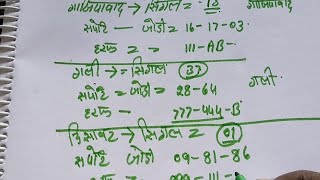 गाजियाबाद → सिंगल = 18 गाजियाबाद
सपोर्ट — जोडी = 16-17-03.
हरूफ = = 111-AB-
गली → = सिंगल 37
सपोर्ट = जोडी = 28-64 गली.
हरूफ 777-444-B
दिसावर → सिंगल = 01
सपोर्ट जोडी 09-81-86